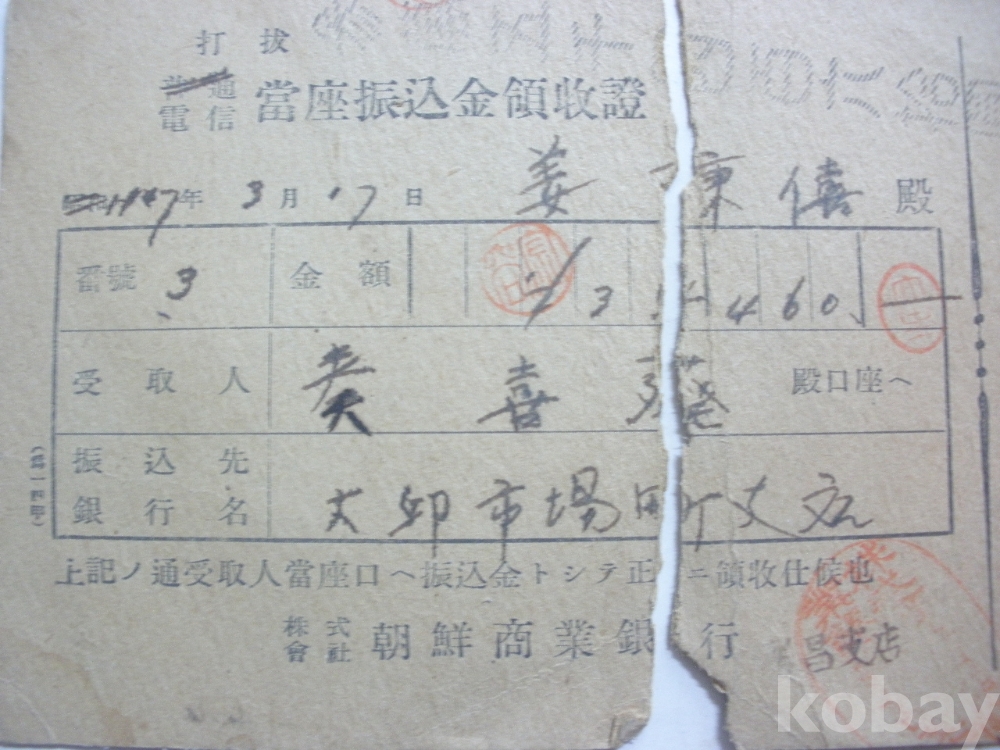 打拔
普通
電信
當座振込金領收證
1947年 3月 17日 姜 康 僖 殿
番號 3 金額 13 460
受取人 喜 殿口座ヘ
振込先
銀行名 大邱市場町支店
上記ノ通受取人當座口ヘ振込金トシテ正ニ領收仕候也
株式
會社
朝鮮商業銀行 昌支店
kobay